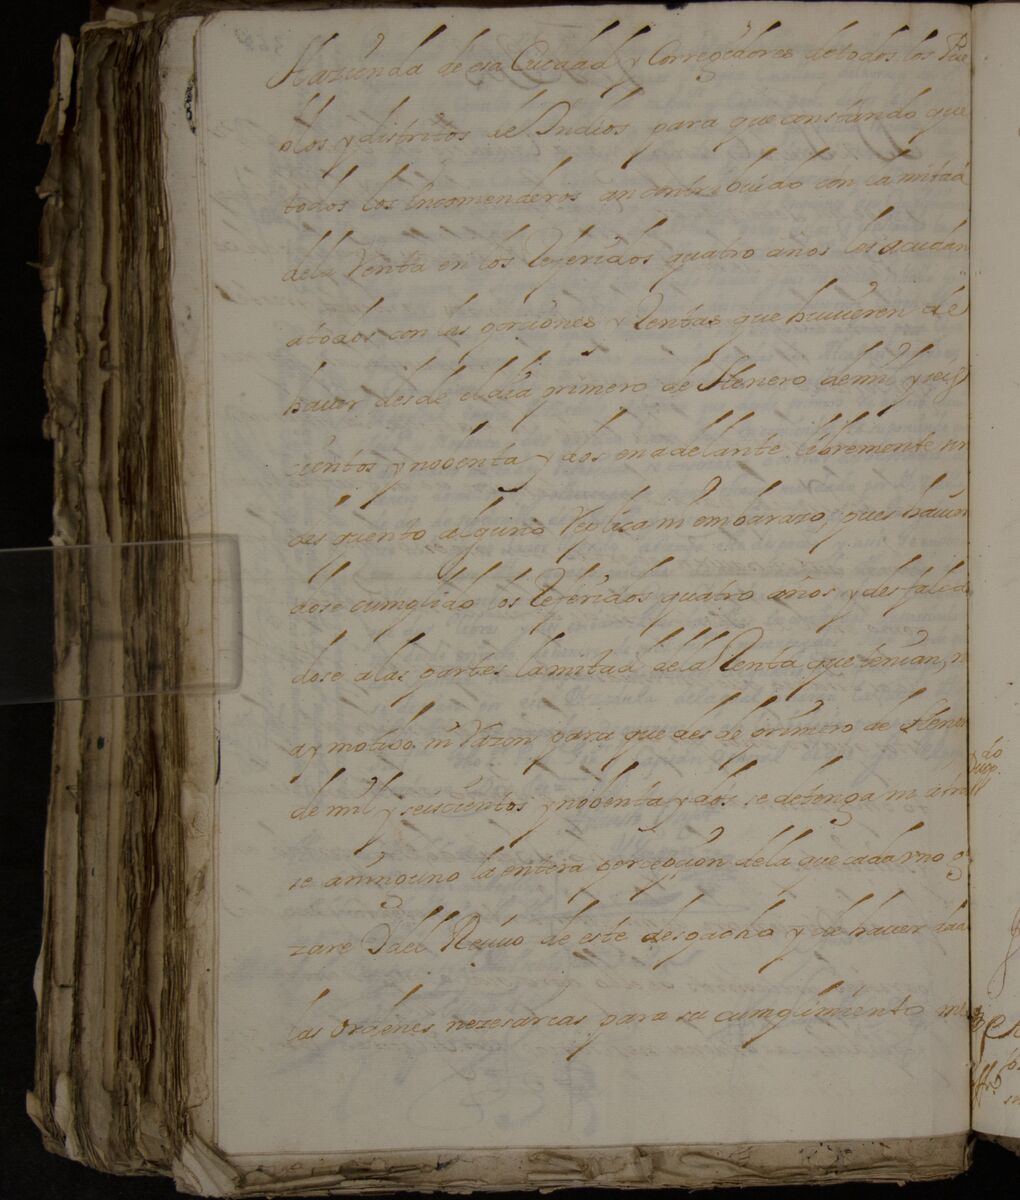 Hazienda de esa Ciudad y Corregidores de todos los Pue
blos y distritos de Yndios para que constando que
todos los Encomenderos an contribuido con la mitad
dela Renta en los Referidos quatro años les acudan
atodos con las porciones y Rentas que huuieren de
hauer desde el dia primero de Henero de mil y seis
sientos y nobenta y dos en adelante libremente sin
des quento alguno Replica ni embarazo, pues hauien
dose cumplido los Referidos quatro años y des falca
dose alas partes la mitad dela Renta que tenian, n
ay motibo ni Razon para que des de primero de Hener
de mil y seiscientos y nobenta y dos se detenga ni atra
se aninguno la entera percepçion dela que cada vno g
zare Y del Reciuo de este despacho y de hauer dad
las ordenes nezesarias para su cumplimiento me